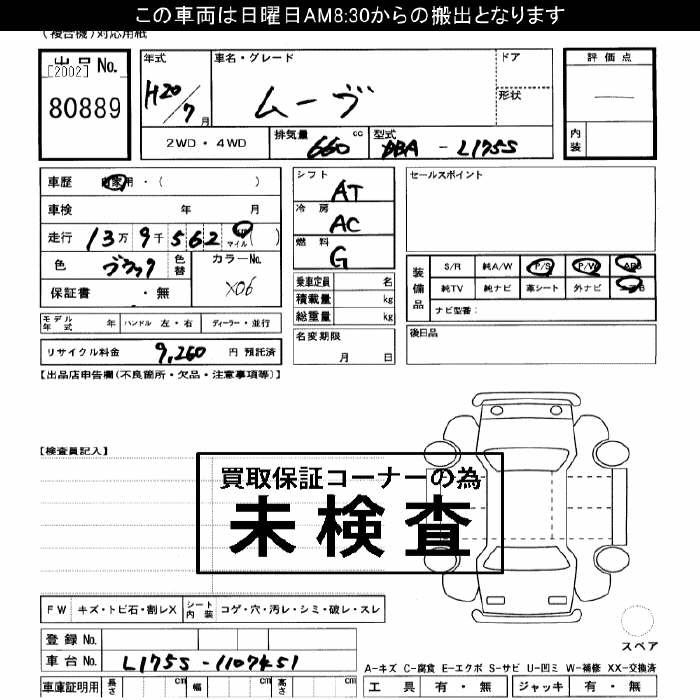 この車両は日曜日AM8:30からの搬出となります
(複合機)対応用紙
出品 No.
[2002]
80889
年式
H20/7月
車名・グレード
ムーヴ
ドア
形状
評価点
内装
2WD・4WD
排気量 660 cc
型式 DBA - L175S
車歴 自家用・( )
車検 年 月
走行 13万9千562 マイル( )
色 ブラック
色替
カラーNo.
X06
保証書 ・ 無
モデル年式 年
ハンドル 左・右
ディーラー・並行
リサイクル料金 9,260 円 預託済
シフト AT
冷房 AC
燃料 G
乗車定員 名
積載量 kg
総重量 kg
名変期限
月 日
セールスポイント
装備品
S/R 純A/W P/S P/W ABS
純TV 純ナビ 革シート 外ナビ
ナビ型番:
後日品
【出品店申告欄(不良箇所・欠品・注意事項等)】
【検査員記入】
買取保証コーナーの為
未検査
FW キズ・トビ石・割レX
シート内装 コゲ・穴・汚レ・シミ・破レ・スレ
スペア
登録 No.
車台 No. L175S-1107451
車庫証明用 長さ cm 幅 cm 高さ cm
A-キズ C-腐食 E-エクボ S-サビ U-凹ミ W-補修 XX-交換済
工具 有・無 ジャッキ 有・無